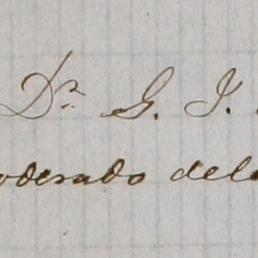 Dr. G. J.
oderado dela